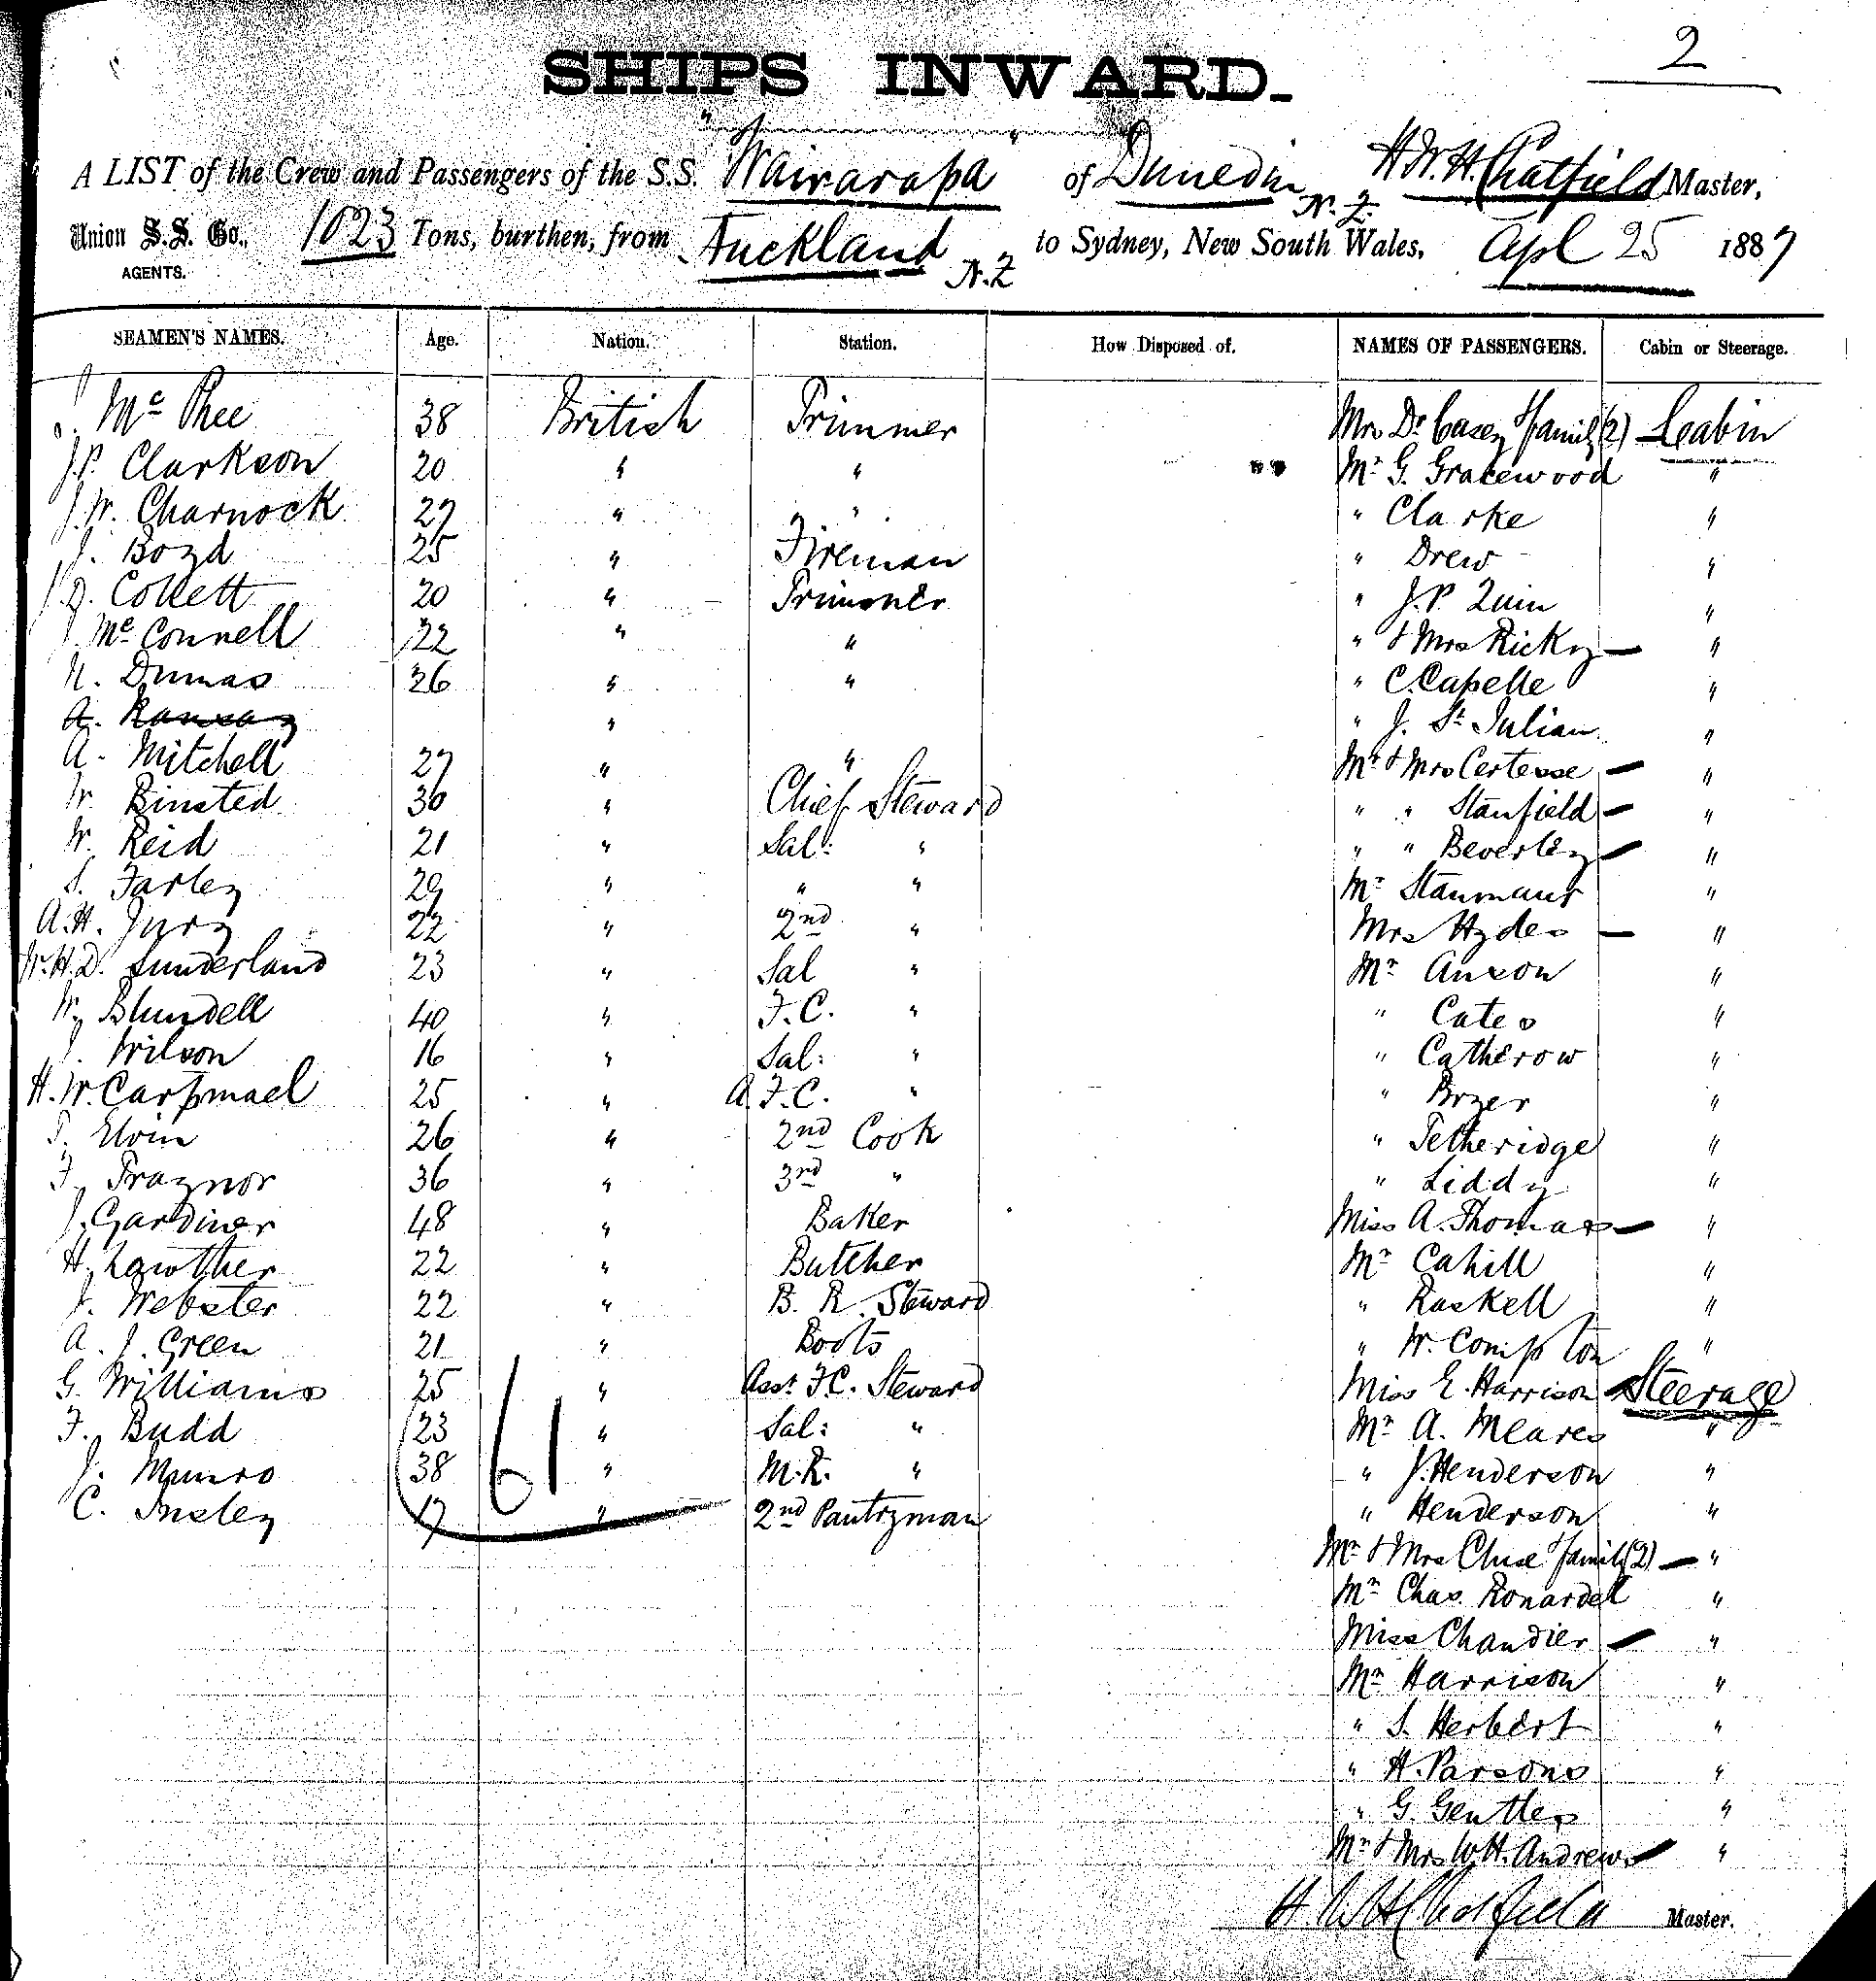 2
SHIPS INWARD.
A LIST of the Crew and Passengers of the S.S. "Wairarapa" of Dunedin N.Z. H.W.H. Chatfield Master,
Union S.S. Co., AGENTS. 1023 Tons, burthen, from Auckland N.Z to Sydney, New South Wales, Apl 25 1887
SEAMEN'S NAMES. Age. Nation. Station. How Disposed of. NAMES OF PASSENGERS. Cabin or Steerage.
J. Mc Phee 38 British Trimmer Mrs Dr Casey & family (2) Cabin
J.P. Clarkson 20 " " Mr G. Gracewood "
J.W. Charnock 27 " " " Clarke "
J. Boyd 25 " Fireman " Drew "
Collett 20 " Trimmer " J.P. Quin "
J. Mc Connell 22 " " " & Mrs Ricky "
N. Dumas 26 " " " C. Capelle "
A. Ramsay " " J. St Julian "
A. Mitchell 27 " " Mr & Mrs Certesse "
W. Binsted 30 " Chief Steward " " Stanfield "
W. Reid 21 " Sal: " " " Beverley "
S. Farley 29 " " " Mr "
A.H. Jury 22 " 2nd " Mrs Hydes "
W.H.D. Sunderland 23 " Sal " Mr Anson "
W. Blundell 40 " F.C. " " Cates "
J. Wilson 16 " Sal: " " Catherow "
H.W. Carpmael 25 " A.F.C. " " Bryer "
T. Elvin 26 " 2nd Cook " Tetheridge "
F. Traynor 36 " 3rd " " Liddy "
J. Gardiner 48 " Baker Miss A. Thomas "
H. Lowther 22 " Butcher Mr Cahill "
J. Webster 22 " B. R. Steward " Raskell "
A. J. Green 21 " Boots " W. Compton "
G. Williams 25 " Asst F.C. Steward Miss E. Harrison Steerage
F. Budd 23 " Sal: " Mr A. Meares "
J. Munro 38 " M.R. " " J. Henderson "
C. Insley 17 " 2nd Pantryman " Henderson "
61
Mr & Mrs Cluse & family (2) "
Mr Chas. Ronardel "
Miss Chandier "
Mr Harrison "
" S. Herbert "
" H. Parsons "
" G. Gentles "
Mr & Mrs W.H. Andrews "
H W H Chatfield Master.